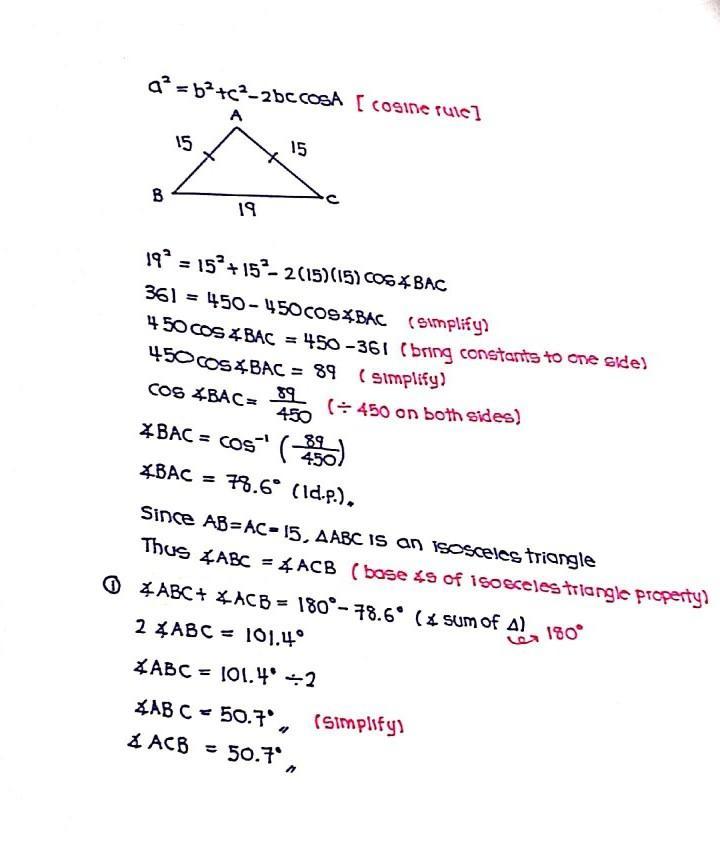 a² = b²+c²-2bc cosA [cosine rule]
A
15
15
B
C
19
19² = 15²+15²-2(15)(15) cos∡BAC
361 = 450 - 450cos∡BAC (simplify)
450cos∡BAC = 450-361 (bring constants to one side)
450cos∡BAC = 89 (simplify)
cos ∡BAC = 89/450 (÷ 450 on both sides)
∡BAC = cos⁻¹ (89/450)
∡BAC = 78.6° (1d.p.)
Since AB=AC=15, ΔABC is an isosceles triangle
Thus ∡ABC = ∡ACB (base ∡s of isosceles triangle property)
① ∡ABC + ∡ACB = 180° - 78.6° (∡ sum of Δ) ↪ 180°
2 ∡ABC = 101.4°
∡ABC = 101.4° ÷2
∡ABC = 50.7° (simplify)
∡ACB = 50.7°